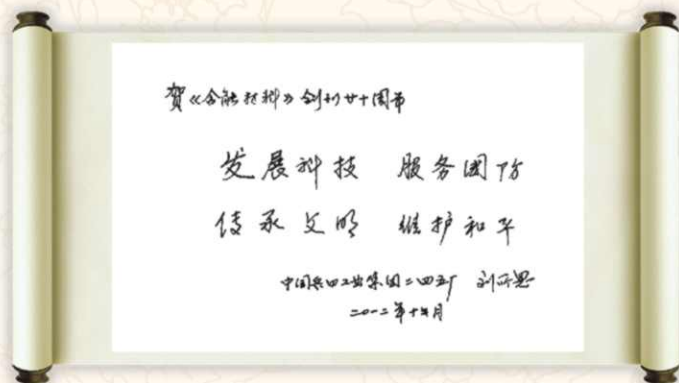 贺《含能材料》创刊廿十周年
发展科技 服务国防
传承文明 维护和平
中国兵四工业集团二四五厂 刘所恩
二〇一二年十月